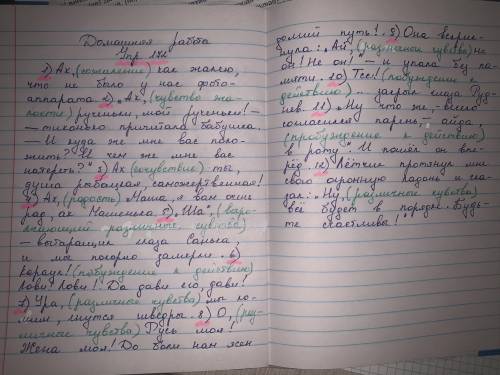 Домашняя работа
Упр. 172
1) Ах, (сожаление) как жалею,
что не было у нас фото-
аппарата. 2) „Ах, (чувство жа-
лости) рученьки, мои рученьки! –
– тихонько причитала бабушка. –
– И куда же мне вас поло-
жить? И чем же мне вас
натереть?" 3) Ах (сочувствие) ты,
душа рыбацкая, самоотверженная!
4) Ах, (радость) Маша, я вам очень
рад, ах Машенька. 5) „Ша", (выра-
жающий различные чувства)
– вытаращив глаза Санька,
и мы покорно замерли. 6)
Караул! (побуждение к действию)
Лови Лови! Да дави его, дави!
7) Ура, (различные чувства) мы ло-
мим, гнутся шведы. 8) О, (раз-
личные чувства) Русь моя!
Жена моя! До боли нам ясен
долгий путь! 9) Она вскрик-
нула: „Ай, (различные чувства) не
он! Не он!" – и упала без па-
мяти. 10) Тсс! (побуждение к
действию) .. закрыл глаза Руд-
нев. 11) „Ну что же, – весело
согласился парень, – айда
(пробуждение к действию)
в роту". И пошёл он впе-
рёд. 12) Лётчик протянул мне
свою огромную ладонь и ска-
зал: „Ну, (различные чувства)
всё будет в порядке. Будь-
те счастливы!"